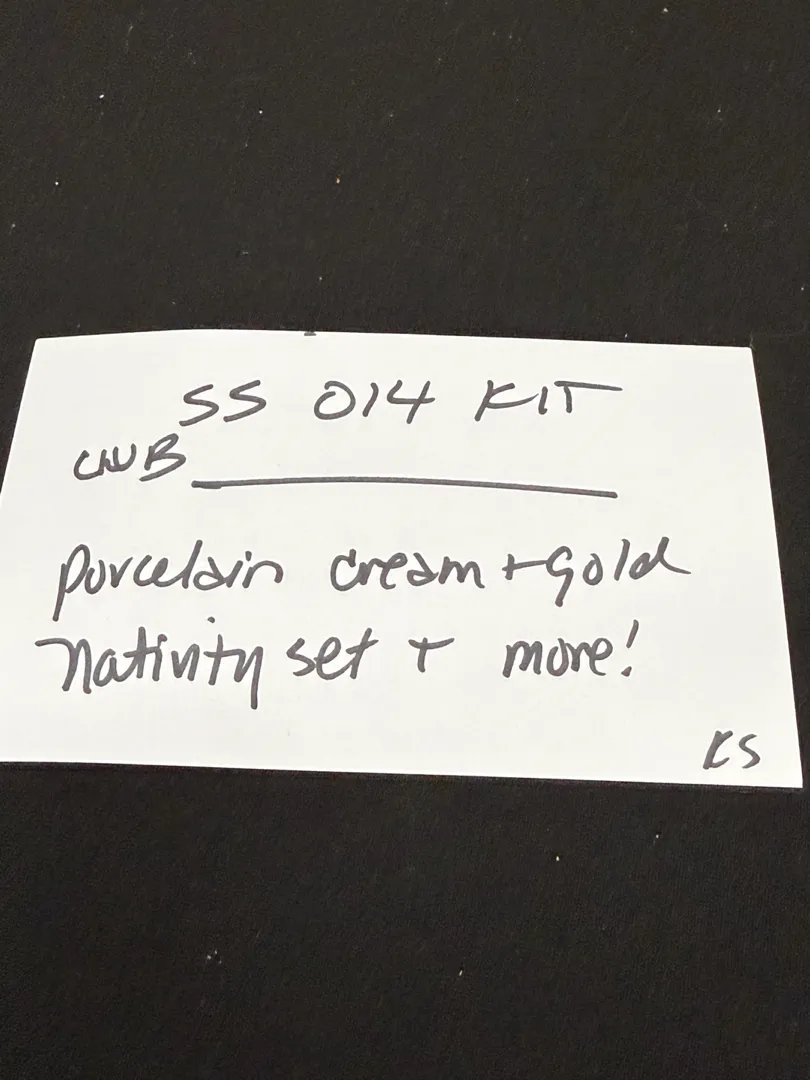 SS 014 KIT
CWB
porcelain cream + gold
Nativity set + more!
KS